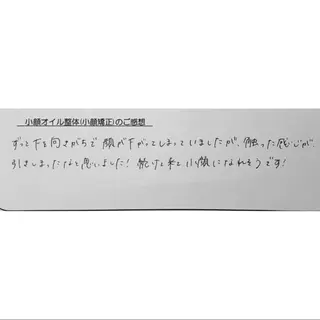 小顔オイル整体(小顔矯正)のご感想
ずっと下を向きがちで 顔が下がってしまっていましたが、触った感じが、
引きしまったなと思いました! 続けて来て小顔になれそうです!